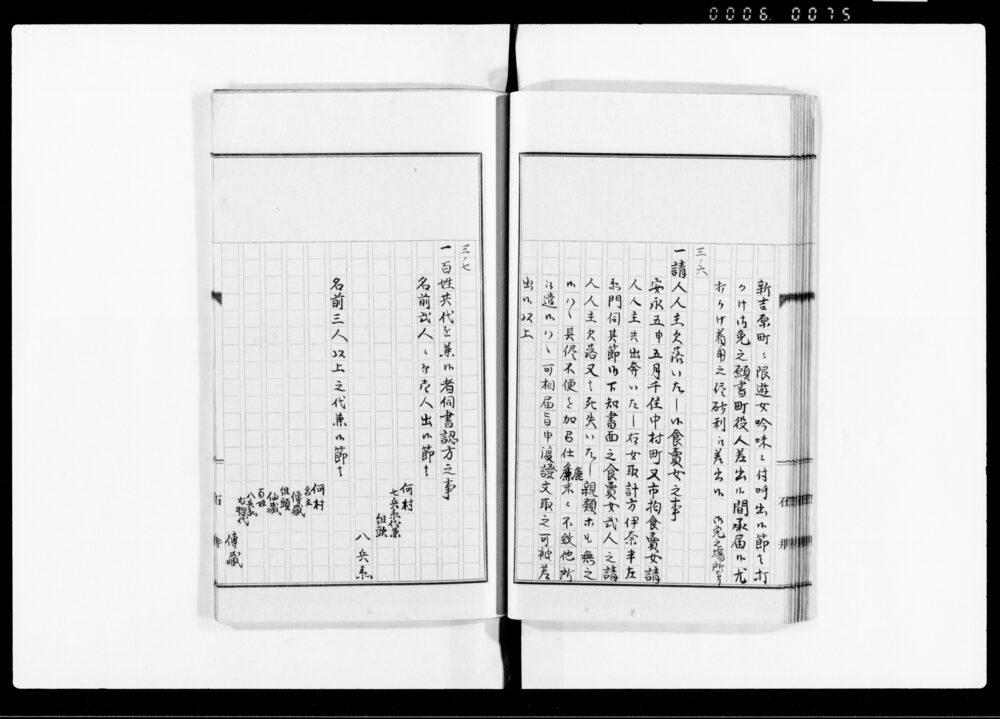 0006 0075
新吉原町ニ限遊女吟味ニ付呼出候節者打
かけ御免之願書町役人差出候間承届候尤
打かけ着用之侭砂利江差出候 御免之場所ニ而
三ノ六
一請人人主欠落いたし候食賣女之事
安永五申五月千住中村町又市抱食賣女請
人人主共出奔いたし右女取計方伊奈半左
衛門伺其節御下知書面之食賣女弐人之請
人人主欠落又者死失いたし親類等も無之
候ハヽ其侭不便を加召仕麁末ニ不致他所
江遣候ハヽ可相届旨申渡證文取之可被差
出候以上
三ノ七
一百姓共代を兼候者伺書認方之事
名前弐人ニ而壱人出候節者
何村
七兵衛代兼
組頭
八兵衛
名前三人以上之代兼候節者
何村
名主
傳藏
組頭
仙藏
百姓
八兵衛
右惣代
傳藏